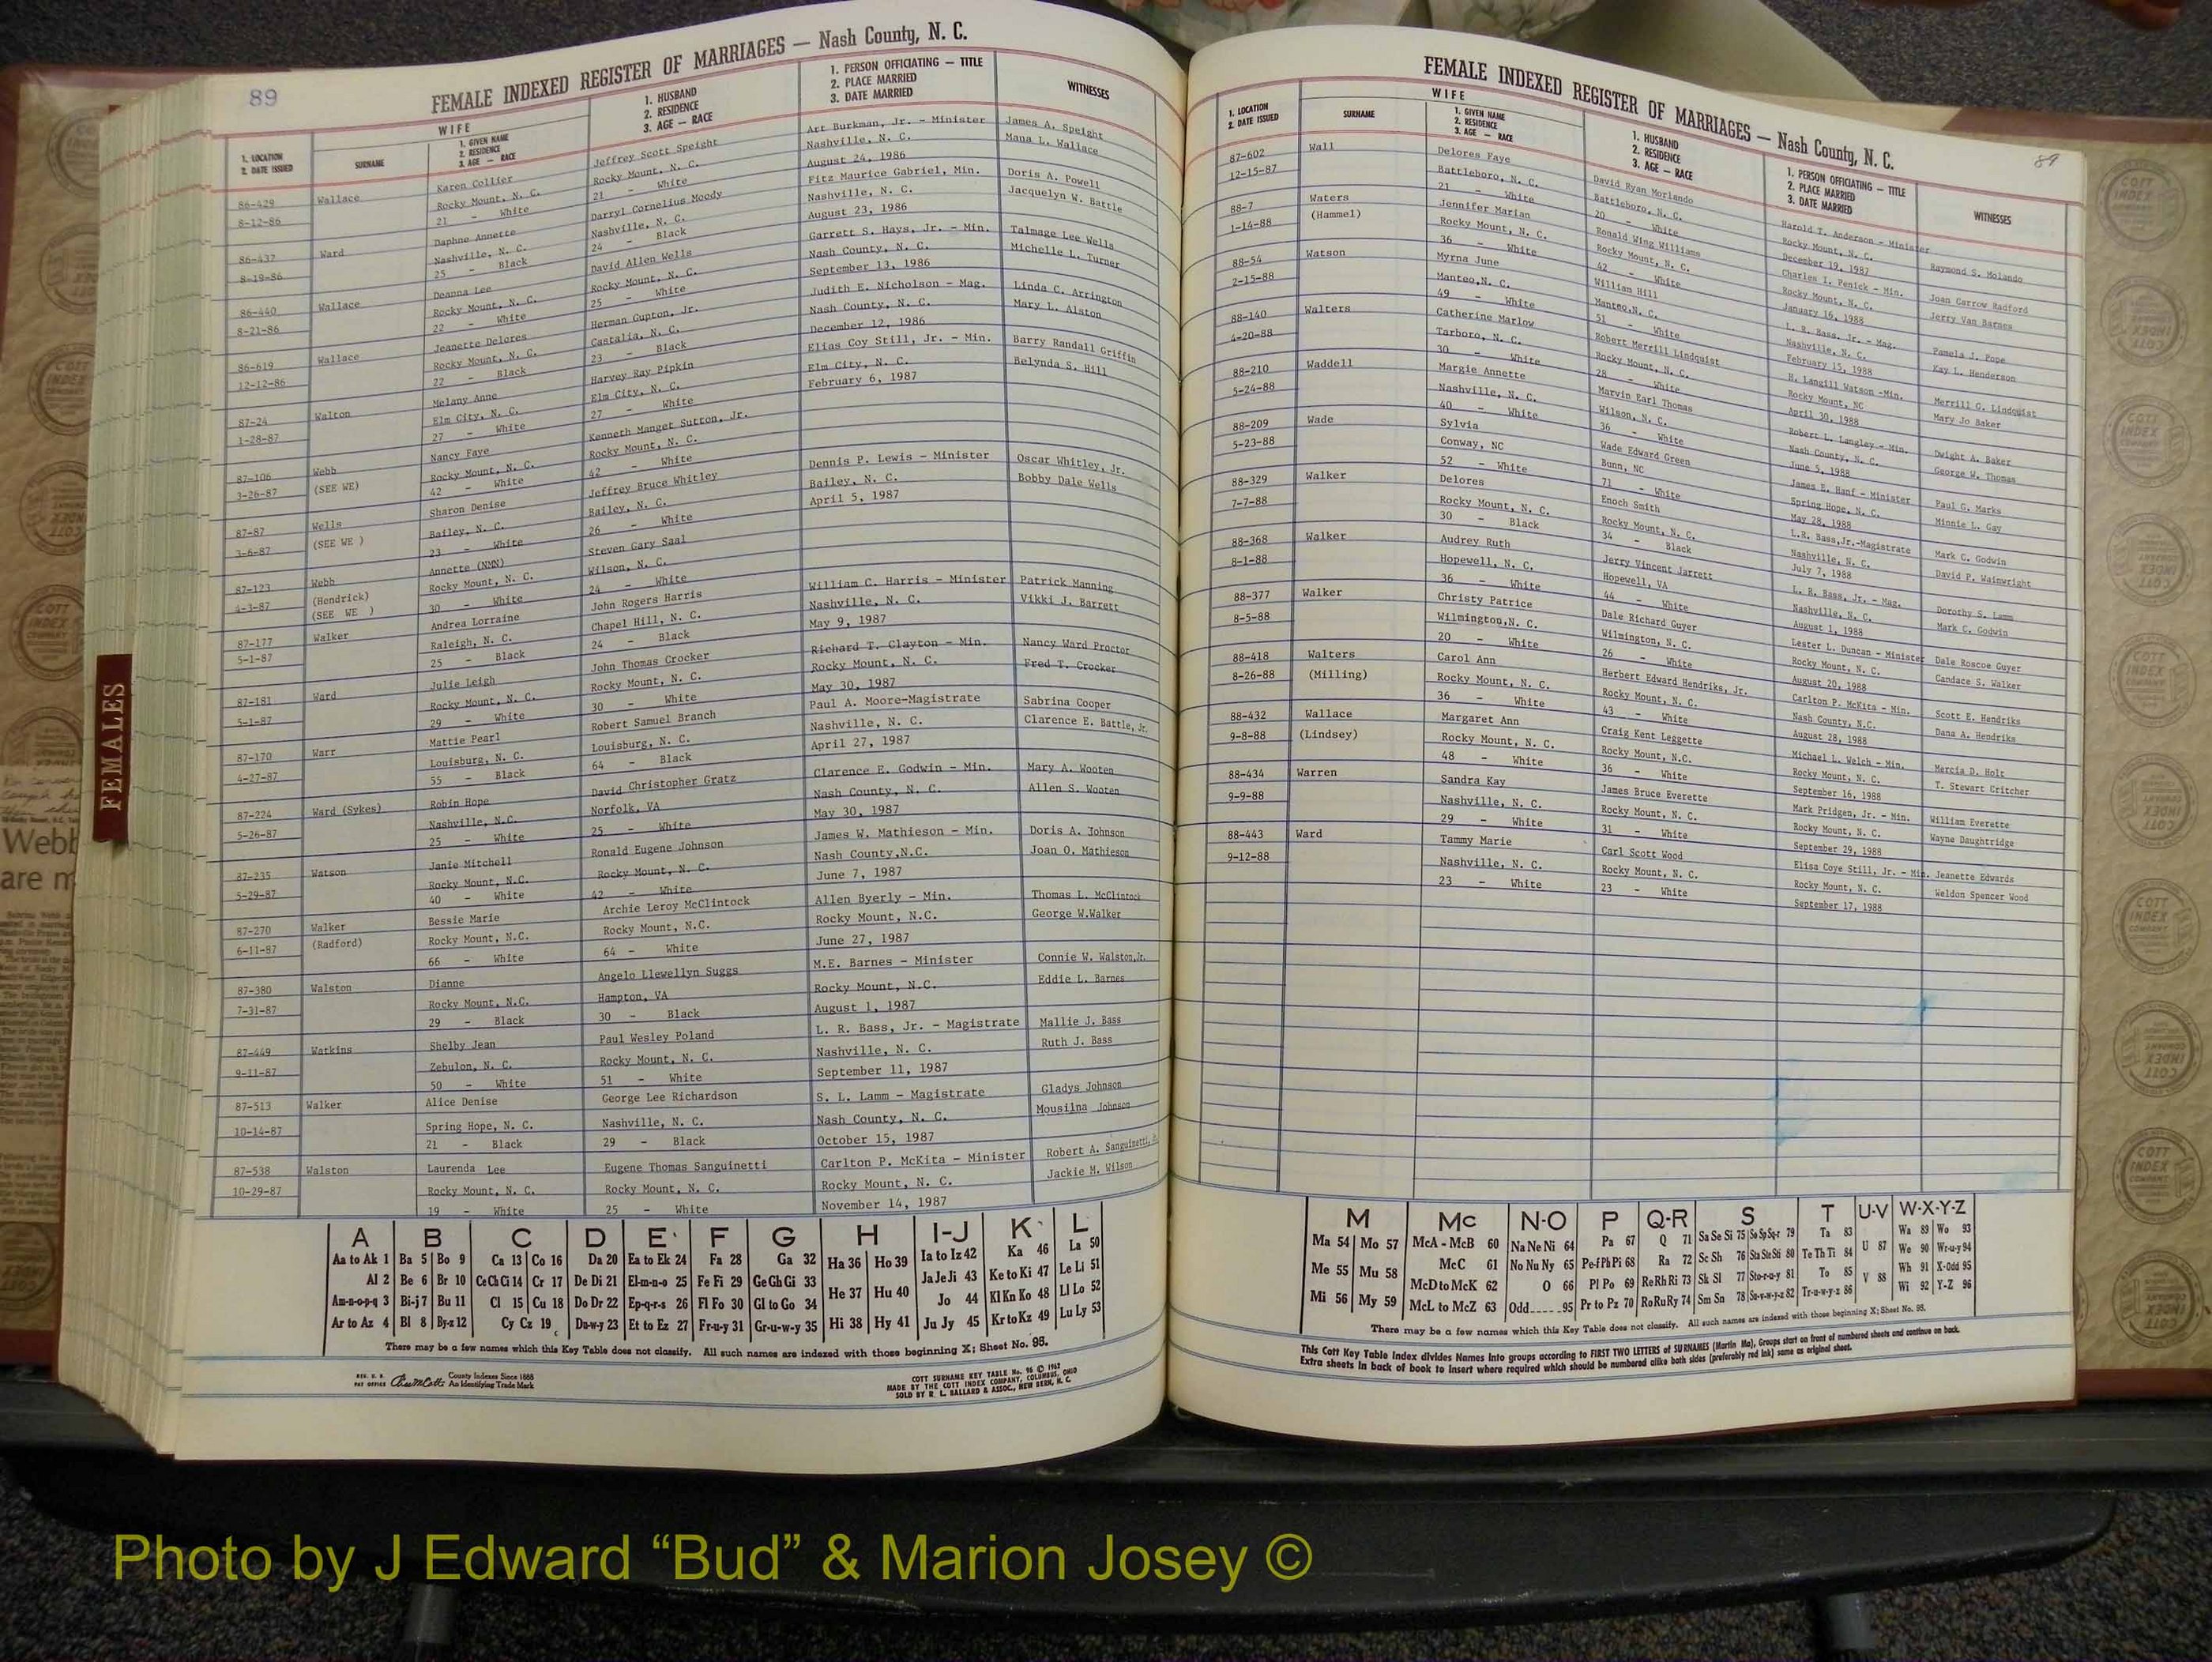 89
FEMALE INDEXED REGISTER OF MARRIAGES — Nash County, N. C.
1. LOCATION
2. DATE ISSUED
WIFE
SURNAME
1. GIVEN NAME
2. RESIDENCE
3. AGE — RACE
1. HUSBAND
2. RESIDENCE
3. AGE — RACE
1. PERSON OFFICIATING — TITLE
2. PLACE MARRIED
3. DATE MARRIED
WITNESSES
86-429 Wallace Karen Collier Jeffrey Scott Speight Art Burkman, Jr. - Minister James A. Speight
8-12-86 Rocky Mount, N. C. Rocky Mount, N. C. Nashville, N. C. Mana L. Wallace
21 - White 21 - White August 24, 1986
86-432 Ward Daphne Annette Darryl Cornelius Moody Fitz Maurice Gabriel, Min. Doris A. Powell
8-19-86 Nashville, N. C. Nashville, N. C. Nashville, N. C. Jacquelyn W. Battle
25 - Black 24 - Black August 23, 1986
86-440 Wallace Deanna Lee David Allen Wells Garrett S. Hays, Jr. - Min. Talmage Lee Wells
8-21-86 Rocky Mount, N. C. Rocky Mount, N. C. Nash County, N. C. Michelle L. Turner
22 - White 25 - White September 13, 1986
86-619 Wallace Jeanette Delores Herman Gupton, Jr. Judith E. Nicholson - Mag. Linda C. Arrington
12-12-86 Rocky Mount, N. C. Castalia, N. C. Nash County, N. C. Mary L. Alston
22 - Black 23 - Black December 12, 1986
87-24 Walton Melany Anne Harvey Ray Pipkin Elias Coy Still, Jr. - Min. Barry Randall Griffin
1-28-87 Elm City, N. C. Elm City, N. C. Elm City, N. C. Belynda S. Hill
27 - White 27 - White February 6, 1987
87-106 Webb Nancy Faye Kenneth Manget Sutton, Jr.
3-26-87 (SEE WE) Rocky Mount, N. C. Rocky Mount, N. C.
42 - White 42 - White
87-87 Wells Sharon Denise Jeffrey Bruce Whitley Dennis P. Lewis - Minister Oscar Whitley, Jr.
3-6-87 (SEE WE ) Bailey, N. C. Bailey, N. C. Bailey, N. C. Bobby Dale Wells
23 - White 26 - White April 5, 1987
87-123 Webb Annette (NMN) Steven Gary Saal
4-3-87 (Hendrick) Rocky Mount, N. C. Wilson, N. C.
(SEE WE ) 30 - White 24 - White
87-177 Walker Andrea Lorraine John Rogers Harris William C. Harris - Minister Patrick Manning
5-1-87 Raleigh, N. C. Chapel Hill, N. C. Nashville, N. C. Vikki J. Barrett
25 - Black 24 - Black May 9, 1987
87-181 Ward Julie Leigh John Thomas Crocker Richard T. Clayton - Min. Nancy Ward Proctor
5-1-87 Rocky Mount, N. C. Rocky Mount, N. C. Rocky Mount, N. C. Fred T. Crocker
29 - White 30 - White May 30, 1987
87-170 Warr Mattie Pearl Robert Samuel Branch Paul A. Moore-Magistrate Sabrina Cooper
4-27-87 Louisburg, N. C. Louisburg, N. C. Nashville, N. C. Clarence E. Battle, Jr.
55 - Black 64 - Black April 27, 1987
87-224 Ward (Sykes) Robin Hope David Christopher Gratz Clarence E. Godwin - Min. Mary A. Wooten
5-26-87 Nashville, N.C. Norfolk, VA Nash County, N. C. Allen S. Wooten
25 - White 25 - White May 30, 1987
87-235 Watson Janie Mitchell Ronald Eugene Johnson James W. Mathieson - Min. Doris A. Johnson
5-29-87 Rocky Mount, N.C. Rocky Mount, N. C. Nash County,N.C. Joan O. Mathieson
40 - White 42 - White June 7, 1987
87-270 Walker Bessie Marie Archie Leroy McClintock Allen Byerly - Min. Thomas L. McClintock
6-11-87 (Radford) Rocky Mount, N.C. Rocky Mount, N.C. Rocky Mount, N.C. George W.Walker
66 - White 64 - White June 27, 1987
87-380 Walston Dianne Angelo Llewellyn Suggs M.E. Barnes - Minister Connie W. Walston,Jr.
7-31-87 Rocky Mount, N.C. Hampton, VA Rocky Mount, N.C. Eddie L. Barnes
29 - Black 30 - Black August 1, 1987
87-449 Watkins Shelby Jean Paul Wesley Poland L. R. Bass, Jr. - Magistrate Mallie J. Bass
9-11-87 Zebulon, N. C. Rocky Mount, N. C. Nashville, N. C. Ruth J. Bass
50 - White 51 - White September 11, 1987
87-513 Walker Alice Denise George Lee Richardson S. L. Lamm - Magistrate Gladys Johnson
10-14-87 Spring Hope, N. C. Nashville, N. C. Nash County, N. C. Mousilna Johnson
21 - Black 29 - Black October 15, 1987
87-538 Walston Laurenda Lee Eugene Thomas Sanguinetti Carlton P. McKita - Minister Robert A. Sanguinetti,
10-29-87 Rocky Mount, N. C. Rocky Mount, N. C. Rocky Mount, N. C. Jackie M. Wilson
19 - White 25 - White November 14, 1987
A B C D E F G H I-J K L
Aa to Ak 1 Ba 5 Bo 9 Ca 13 Co 16 Da 20 Ea to Ek 24 Fa 28 Ga 32 Ha 36 Ho 39 Ia to Iz 42 Ka 46 La 50
Al 2 Be 6 Br 10 Ce Ch Ci 14 Cr 17 De Di 21 El-m-n-o 25 Fe Fi 29 Ge Gh Gi 33 He 37 Hu 40 Ja Je Ji 43 Ke to Ki 47 Le Li 51
Am-n-o-p-q 3 Bi-j 7 Bu 11 Cl 15 Cu 18 Do Dr 22 Ep-q-r-s 26 Fl Fo 30 Gl to Go 34 Jo 44 Kl Kn Ko 48 Ll Lo 52
Ar to Az 4 Bl 8 By-z 12 Cy Cz 19 Du-w-y 23 Et to Ez 27 Fr-u-y 31 Gr-u-w-y 35 Hi 38 Hy 41 Ju Jy 45 Kr to Kz 49 Lu Ly 53
There may be a few names which this Key Table does not classify. All such names are indexed with those beginning X; Sheet No. 95.
REG. U. S.
PAT OFFICE
County Indexes Since 1888
An Identifying Trade Mark
COTT SURNAME KEY TABLE No. 96 © 1962
MADE BY THE COTT INDEX COMPANY, COLUMBUS, OHIO
SOLD BY R. L. BALLARD & ASSOC., NEW BERN, N. C.
FEMALES
Webb
are m
FEMALE INDEXED REGISTER OF MARRIAGES — Nash County, N. C.
89
1. LOCATION
2. DATE ISSUED
WIFE
SURNAME
1. GIVEN NAME
2. RESIDENCE
3. AGE — RACE
1. HUSBAND
2. RESIDENCE
3. AGE — RACE
1. PERSON OFFICIATING — TITLE
2. PLACE MARRIED
3. DATE MARRIED
WITNESSES
87-602 Wall Delores Faye David Ryan Morlando Harold T. Anderson - Minister Raymond S. Molando
12-15-87 Battleboro, N. C. Battleboro, N. C. Rocky Mount, N. C.
21 - White 20 - White December 19, 1987
88-7 Waters Jennifer Marian Ronald Wing Williams Charles I. Penick - Min. Joan Carrow Radford
1-14-88 (Hammel) Rocky Mount, N. C. Rocky Mount, N. C. Rocky Mount, N. C. Jerry Van Barnes
36 - White 42 - White January 16, 1988
88-54 Watson Myrna June William Hill L. R. Bass, Jr. - Mag. Pamela J. Pope
2-15-88 Manteo,N. C. Manteo,N. C. Nashville, N. C. Kay L. Henderson
49 - White 51 - White February 15, 1988
88-140 Walters Catherine Marlow Robert Merrill Lindquist H. Langill Watson -Min. Merrill G. Lindquist
4-20-88 Tarboro, N. C. Rocky Mount, N. C. Rocky Mount, NC Mary Jo Baker
30 - White 28 - White April 30, 1988
88-210 Waddell Margie Annette Marvin Earl Thomas Robert L. Langley - Min. Dwight A. Baker
5-24-88 Nashville, N. C. Wilson, N. C. Nash County, N. C. George W. Thomas
40 - White 36 - White June 5, 1988
88-209 Wade Sylvia Wade Edward Green James E. Hanf - Minister Paul G. Marks
5-23-88 Conway, NC Bunn, NC Spring Hope, N. C. Minnie L. Gay
52 - White 71 - White May 28, 1988
88-329 Walker Delores Enoch Smith L.R. Bass,Jr.-Magistrate Mark C. Godwin
7-7-88 Rocky Mount, N. C. Rocky Mount, N. C. Nashville, N. C. David P. Wainwright
30 - Black 34 - Black July 7, 1988
88-368 Walker Audrey Ruth Jerry Vincent Jarrett L. R. Bass, Jr. - Mag. Dorothy S. Lamm
8-1-88 Hopewell, N. C. Hopewell, VA Nashville, N. C. Mark C. Godwin
36 - White 44 - White August 1, 1988
88-377 Walker Christy Patrice Dale Richard Guyer Lester L. Duncan - Minister Dale Roscoe Guyer
8-5-88 Wilmington,N. C. Wilmington, N. C. Rocky Mount, N. C. Candace S. Walker
20 - White 26 - White August 20, 1988
88-418 Walters Carol Ann Herbert Edward Hendriks, Jr. Carlton P. McKita - Min. Scott E. Hendriks
8-26-88 (Milling) Rocky Mount, N. C. Rocky Mount, N. C. Nash County, N.C. Dana A. Hendriks
36 - White 43 - White August 28, 1988
88-432 Wallace Margaret Ann Craig Kent Leggette Michael L. Welch - Min. Mercia D. Holt
9-8-88 (Lindsey) Rocky Mount, N. C. Rocky Mount, N.C. Rocky Mount, N. C. T. Stewart Critcher
48 - White 36 - White September 16, 1988
88-434 Warren Sandra Kay James Bruce Everette Mark Pridgen, Jr. - Min. William Everette
9-9-88 Nashville, N. C. Rocky Mount, N. C. Rocky Mount, N. C. Wayne Daughtridge
29 - White 31 - White September 29, 1988
88-443 Ward Tammy Marie Carl Scott Wood Elisa Coye Still, Jr. - Min. Jeanette Edwards
9-12-88 Nashville, N. C. Rocky Mount, N. C. Rocky Mount, N. C. Weldon Spencer Wood
23 - White 23 - White September 17, 1988
M Mc N-O P Q-R S T U-V W-X-Y-Z
Ma 54 Mo 57 McA - McB 60 Na Ne Ni 64 Pa 67 Q 71 Sa Se Si 75 So Sp Sq-r 79 Ta 83 U 87 Wa 89 Wo 93
Me 55 Mu 58 McC 61 No Nu Ny 65 Pe-f Ph Pi 68 Ra 72 Sc Sh 76 Sta Ste Sti 80 Te Th Ti 84 We 90 Wr-u-y 94
McD to McK 62 O 66 Pl Po 69 Re Rh Ri 73 Sk Sl 77 Sto-r-u-y 81 To 85 V 88 Wh 91 X-Odd 95
Mi 56 My 59 McL to McZ 63 Odd.....95 Pr to Pz 70 Ro Ru Ry 74 Sm Sn 78 Su-v-w-y-z 82 Tr-u-w-y-z 86 Wi 92 Y-Z 96
There may be a few names which this Key Table does not classify. All such names are indexed with those beginning X; Sheet No. 95.
This Cott Key Table Index divides Names into groups according to FIRST TWO LETTERS of SURNAMES (Martin Ma), Groups start on front of numbered sheets and continue on back.
Extra sheets in back of book to insert where required which should be numbered alike both sides (preferably red ink) same as original sheet.
Photo by J Edward “Bud” & Marion Josey ©